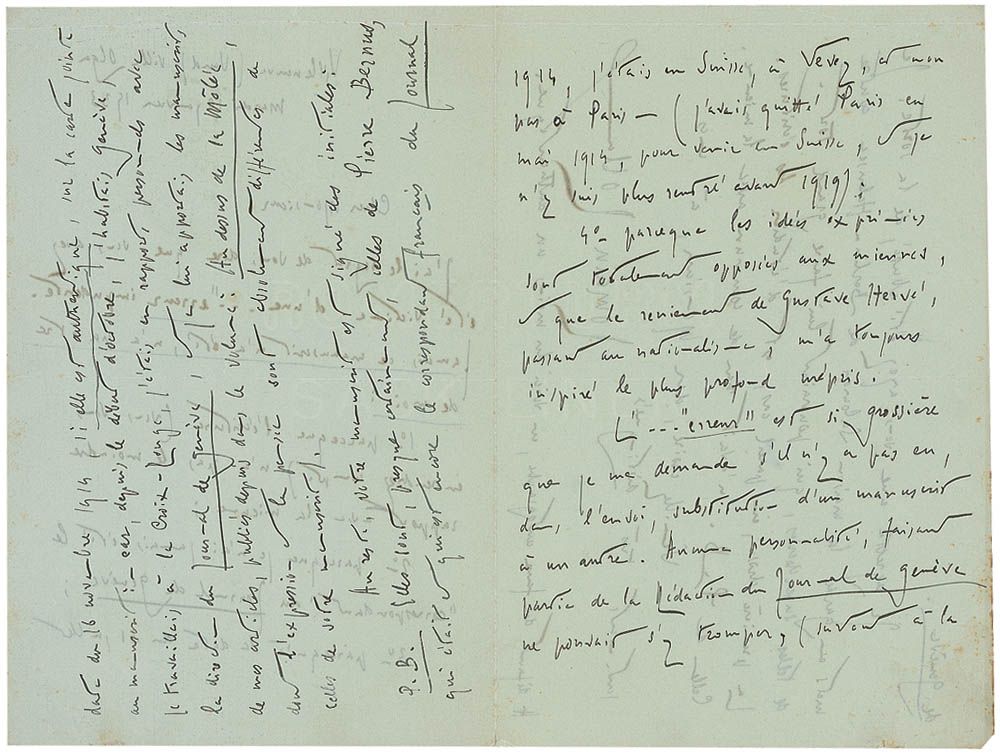 1914, j'étais en Suisse, à Vevey, et non
pas à Paris — (j'avais quitté Paris en
mai 1914, pour venir en Suisse, et je
n'y suis plus rentré avant 1919) ;
4° parceque les idées exprimées
sont totalement opposées aux miennes,
et que le reniement de Gustave Hervé,
passant au nationalisme, m'a toujours
inspiré le plus profond mépris.
L'... "erreur" est si grossière
que je me demande s'il n'y a pas eu,
dans l'envoi, substitution d'un manuscrit
à un autre. Aucune personnalité, faisant
partie de la Rédaction du Journal de Genève
ne pouvait s'y tromper, (surtout à la
date du 16 novembre 1914 (si elle est authentique, sur la carte jointe
au manuscrit) — car, depuis le début d'octobre, j'habitais Genève,
je travaillais à la Croix-Rouge, j'étais en rapports personnels avec
la direction du Journal de Genève, et je lui apportais les manuscrits
de mes articles, publiés depuis dans le volume : Au dessus de la Mêlée,
dont l'expression et la pensée sont absolument différentes de
celles de votre manuscrit.
Au reste, votre manuscrit est signé des initiales :
P.B. Elles sont, presque certainement, celles de Pierre Bernus,
qui était et qui est encore le correspondant français du Journal